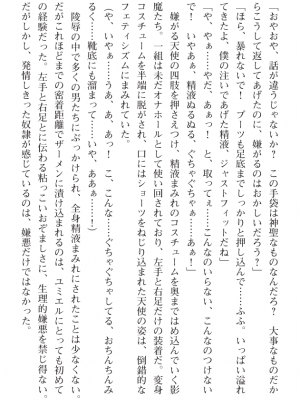 「おやおや、話が違うじゃないか？　この手袋は神聖なものなんだろ？　大事なものだか
らこうして返してあげたのに、嫌がるのはおかしいだろう？」
「ほら、暴れないで！　ブーツも足底までしっかりと押し込んで……ふふ。いっぱい溢れ
てきたよ、僕の注いであげた精液、ジャストフィットだね」
「や、やぁ……やだ、ああっ！　と、取ってぇ……こんなのいらない、こんなのつけない
で！　いやぁぁ！　精液ぬるぬる、ぐちゃぐちゃぁ……あぁ！」
　嫌がる天使の四肢を押さえつけ、精液まみれのコスチュームを奥まではめ込んでいく影
魔たち。一組は未だオナホールとして使い回されており、左手と右足だけの装着だ。変身
コスチュームを半端に脱がされ、口にはショーツをねじり込まれた天使の姿は、倒錯的な
フェティシズムにまみれていた。
「や、いやぁ……うあ、あ、あっ！　こ、こんな……ぐちゃぐちゃしてる、おちんちんみ
るく……靴底にも溜まって……いや、ああぁ……！」
　陵辱の中で多くの男たちにぶっかけられ、全身精液まみれにされたことは少なくない。
だがこれほどまでの密着距離でザーメンに漬け込まれるのは、ユミエルにとっても初めて
の経験だった。左手と右足とに伝わる粘っこいおぞましさに、生理的嫌悪を禁じ得ない。
だがしかし、発情しきった奴隷が感じているのは、嫌悪だけではなかった。